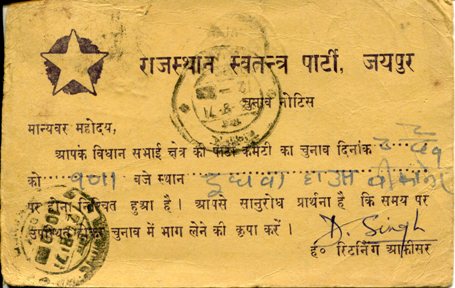 राजस्थान स्वतन्त्र पार्टी, जयपुर
चुनाव नोटिस
मान्यवर महोदय,
आपके विधान सभाई क्षेत्र की पार्टी कमेटी का चुनाव दिनांक
को बजे स्थान
पर होना निश्चित हुआ है। आपसे सानुरोध प्रार्थना है कि समय पर
उपस्थित होकर चुनाव में भाग लेने की कृपा करें।
D. Singh
ह० रिटर्निंग आफीसर